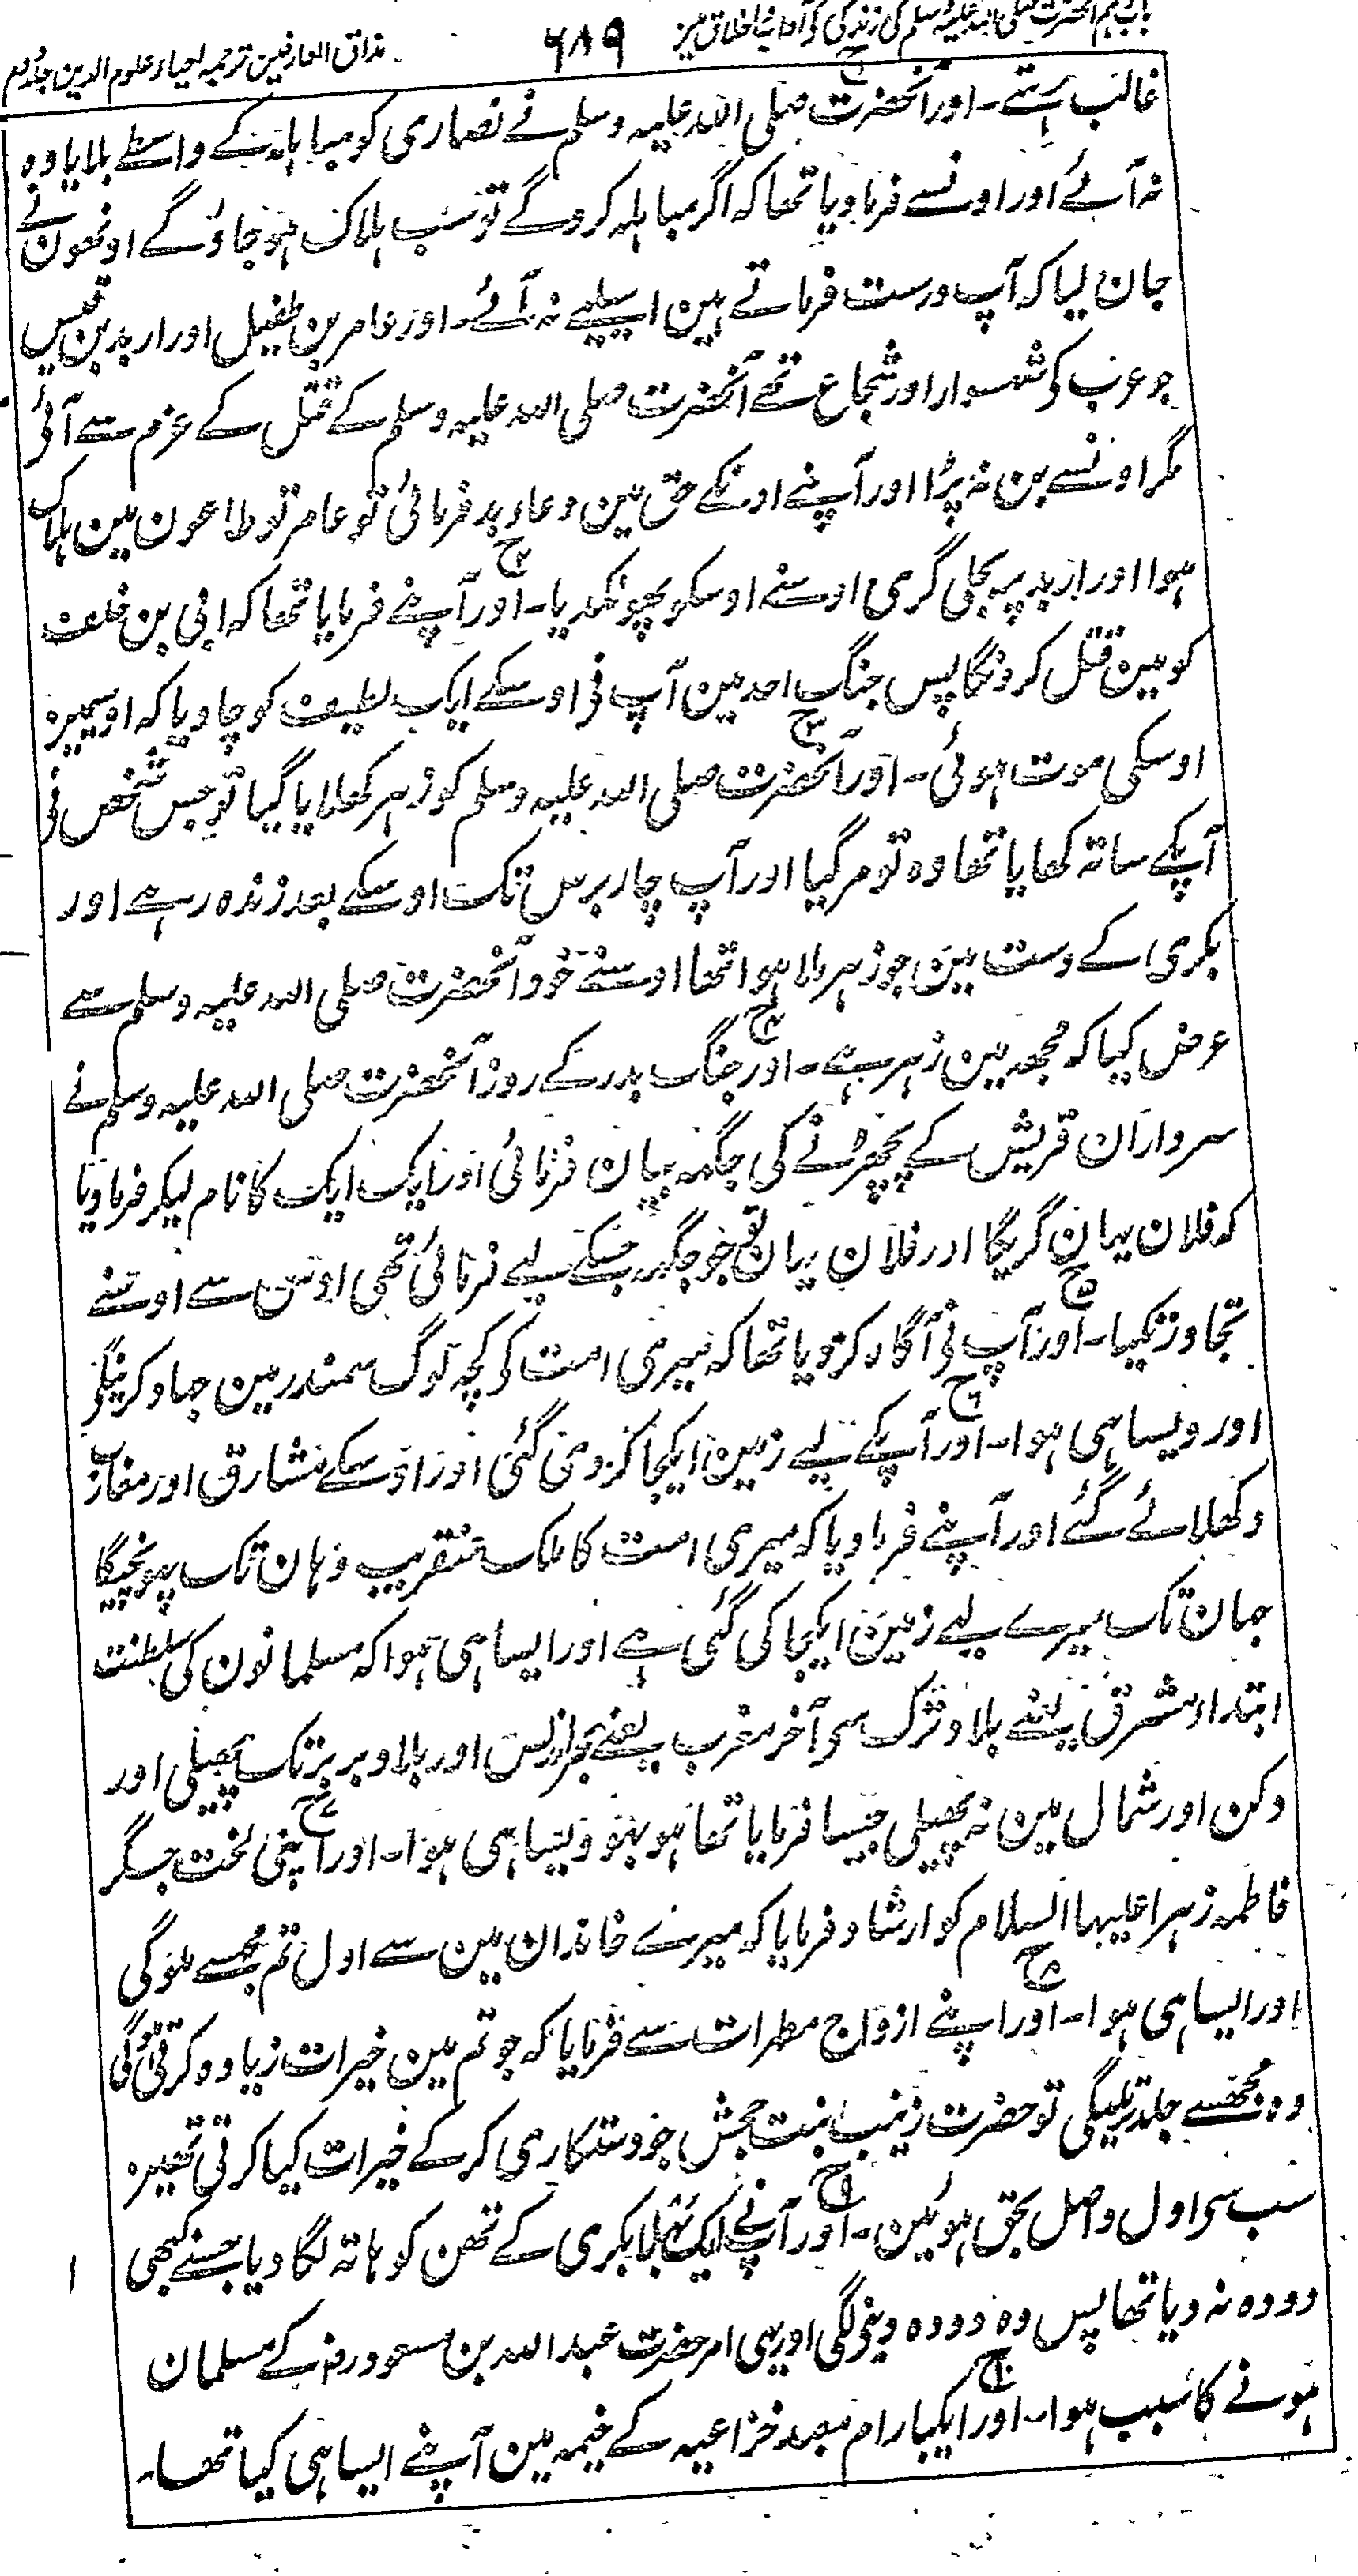 باب دہم آنحضرت صلی اللہ علیہ وسلم کی زندگی کو آداب اخلاق مین ۶۸۹ مذاق العارفین ترجمہ احیاء علوم الدین جلد دوم
غالب رہتے۔ اور آنحضرت صلی اللہ علیہ وسلم نے نصاری کو مباہلہ کے واسطے بلایا وہ
نہ آئے اور اونسے فرما دیا تھا کہ اگر مباہلہ کروگے تو سب ہلاک ہو جاؤگے اونھون نے
جان لیا کہ آپ درست فرماتے ہین اسیلیے نہ آئے۔ اور عامر بن طفیل اور اربد بن قیس
جو عرب کو شہسوار اور شجاع تھے آنحضرت صلی اللہ علیہ وسلم کے قتل کے عزم سے آئی
مگر اونسے بن نہ پڑا اور آپنے اونکے حق مین دعاء بد فرمائی تو عامر تو طاعون مین ہلاک
ہوا اور اربد پر بجلی گری اوسنے اوسکو پھونکدیا۔ اور آپنے فرمایا تھا کہ ابی بن خلف
کو مین قتل کرونگا پس جنگ احد مین آپ نی اوسکے ایک لطیف کوچا دیا کہ اوسیمین
اوسکی موت ہوئی۔ اور آنحضرت صلی اللہ علیہ وسلم کو زہر کھلایا گیا تو جس شخص نی
آپکے ساتہ کھایا تھا وہ تو مر گیا اور آپ چار برس تک اوسکے بعد زندہ رہے اور
بکری کے دست مین جو زہر ملا ہوا تھا اوسنے خود آنحضرت صلی اللہ علیہ وسلم سے
عرض کیا کہ مجھ مین زہر ہے۔ اور جنگ بدر کے روز آنحضرت صلی اللہ علیہ وسلم نے
سرداران قریش کے پچھڑنے کی جگہ بیان فرمائی اور ایک ایک کا نام لیکر فرما دیا
کہ فلان یہان گریگا اور فلان یہان تو جو جگہ جسکے لیے فرمائی تھی اوس سے اوسنے
تجاوز نکیا۔ اور آپ نی آگاہ کر دیا تھا کہ میری امت کو کچھ لوگ سمندر مین جہاد کرینگے
اور ویسا ہی ہوا۔ اور آپکے لیے زمین ایکجا کر دی گئی اور اوسکے مشارق اور مغارب
دکھلائے گئے اور آپنے فرما دیا کہ میری امت کا ملک عنقریب وہان تک پہونچیگا
جہان تک میرے لیے زمین ایکجا کی گئی ہے اور ایسا ہی ہوا کہ مسلمانون کی سلطنت
ابتداء مشرق یعنے بلاد ترک سی آخر مغرب یعنے بحر اندلس اور بلاد بربر تک پھیلی اور
دکن اور شمال مین نہ پھیلی جیسا فرمایا تھا ہو بہو ویسا ہی ہوا۔ اور اپنی لخت جگر
فاطمہ زہرا علیہا السلام کو ارشاد فرمایا کہ میرے خاندان مین سے اول تم مجھسے ملوگی
اور ایسا ہی ہوا۔ اور اپنے ازواج مطہرات سے فرمایا کہ جو تم مین خیرات زیادہ کرتی ہوگی
وہ مجھسے جلد تر ملیگی تو حضرت زینب بنت جحش جو دستکاری کر کے خیرات کیا کرتی تھین
سب سی اول واصل بحق ہوئین۔ اور آپ نے ایک بکری کے تھن کو ہاتہ لگا دیا جسنے کبھی
دودہ نہ دیا تھا پس وہ دودہ دینی لگی اور یہی امر حضرت عبد اللہ بن مسعود رضہ کے مسلمان
ہونے کا سبب ہوا۔ اور ایکبار ام معبد خزاعیہ کے خیمہ مین آپنے ایسا ہی کیا تھا۔